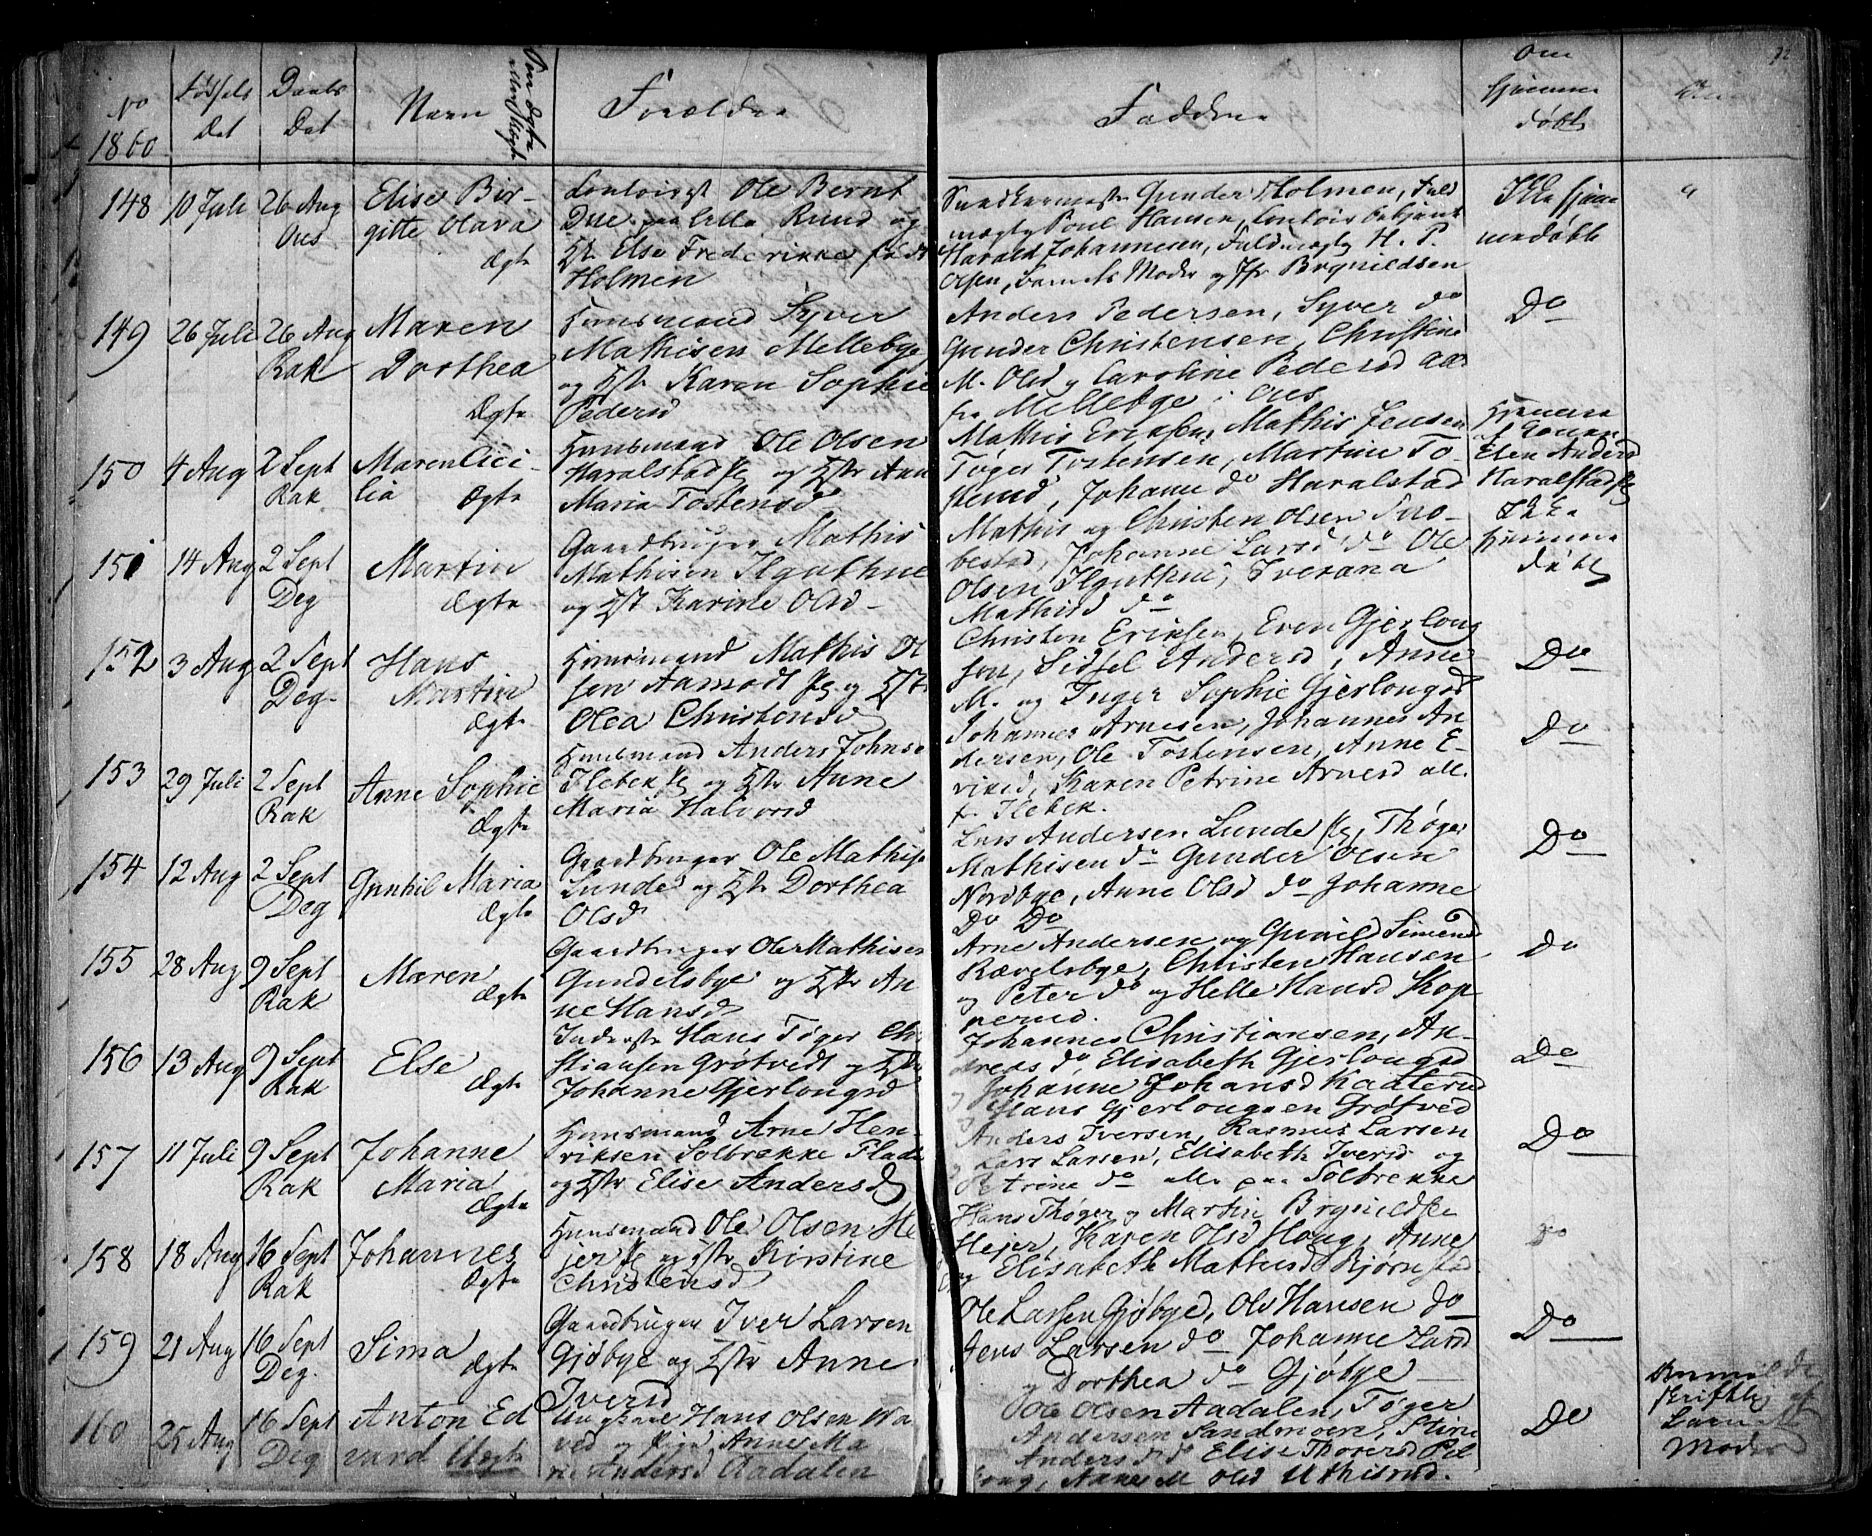 No
1860
Fødsels
Dat
Daabs
Dat
Navn
Om Ægte
eller Uægte
Forældre
Faddere
Om
Hjemme
døbt
148 10 Juli 26 Aug Elise Bir-
Aas gitte Olava
Ægte
Ole Bernt
Due paa Lille Ruud og
Hst Else Frederikke født
Holmen
Gunder Holmen, Fuld
mægtig Poul Hansen,
Harald Johannesen, Fuldmægtig H. P.
Olsen, Barnets Moder og Jfr Brynildsen
Ikke hjem
medøbt
149 26 Juli 26 Aug Maren
Rak Dorthea
Ægte
Huusmand Syver
Mathisen Mellebye
og Hst Karen Sophie
Pedersd
Anders Pedersen, Syver do
Gunder Christensen, Christine
M. Olsd og Caroline Pedersd alle
fra Mellebye i Aas
Do
150 4 Aug 2 Sept Maren Cici-
Rak lia Ægte
Huusmand Ole Olsen
Haralstad Eg og Hst Ann
Maria Tostensd
Mathis Eriksen, Mathis Jensen
Tøger Tostensen, Martine To-
stensd, Johanne do Haralstad
Hjemme
Elen Andersd
Haralstad Eg
151 14 Aug 2 Sept Martin
Deg Ægte
Gaardbruger Mathis
Mathisen Ilguthue
og Hst Karine Olsd
Mathis og Christen Olsen Smo-
bestad, Johanne Larsd do Ole
Olsen Ilguthue, Iverana
Mathisd do
Ikke
Hjemme
døbt
152 3 Aug 2 Sept Hans
Deg Martin
Ægte
Huusmand Mathis Ol
sen Aamodt Eg og Hst
Olea Christensd
Christen Eriksen, Even Gjerloug
sen, Sidsel Andersd, Anne
M. og Inger Sophie Gjerlougsd
Do
153 29 Juli 2 Sept Anne Sophie
Rak Ægte
Huusmand Anders Johns
Ilebek Eg og Hst Anne
Maria Halvorsd
Johannes Arnesen, Johannes An
dersen, Ole Tostensen, Anne E-
riksd, Karen Petrine Arnesd alle
fr Ilebek.
Do
154 12 Aug 2 Sept Gunhil Maria
Deg Ægte
Gaardbruger Ole Mathis
Lunde og Hst Dorthea
Olsd
Lars Andersen Lunde Eg, Thøger
Mathisen do Gunder Olsen
Nordbye, Anne Olsd do Johanne
Do Do
Do
155 28 Aug 9 Sept Maren
Rak Ægte
Gaardbruger Ole Mathisen
Gundelsbye og Hst An
ne Hansd
Arne Andersen og Gunild Simensd
Rævelsbye, Christen Hansen
og Peter do og Helle Hansd Skop
perud.
do
156 13 Aug 9 Sept Else
Rak Ægte
Inderst Hans Tøger Chri
stiansen Grøtvedt og Hst
Johanne Gjerlougsd
Johannes Christiansen, An-
dreas do, Elisabeth Gjerlougsd
og Johanne Johansd Kaaterud
Hans Gjerlougsen Grøtved
Do
157 11 Juli 9 Sept Johanne
Rak Maria
Ægte
Huusmand Arne Hen-
riksen Solbrekke Flade
og Hst Elise Andersd
Anders Iversen, Rasmus Larsen
og Lars Larsen, Elisabeth Iversd og
Petrine do alle paa Solbrekke
Do
158 18 Aug 16 Sept Johannes
Rak Ægte
Huusmand Ole Olsen He
jer Eg og Hst Kirstine
Christensd
Hans Thøger og Martin Brynildse
Hejer, Karen Olsd Houg, Anne
og Elisabeth Mathisd Bjørnstad
Do
159 21 Aug 16 Sept Sima
Deg. Ægte
Gaardbruger Iver Larsen
Gjøbye og Hst Anne
Iversd
Ole Larsen Gjøbye, Ole Hansen do
Jens Larsen do Johanne Larsd
og Dorthea do Gjøbye
Do
160 25 Aug 16 Sept Anton Ed
Deg vard Uægte
Ungkarl Hans Olsen Wa
ved og Pige Anne Ma
rie Andersd Aadalen
Ole Olsen Aadalen, Tøger
Andersen Sandmoen, Stine
Andersd do Elise Thoresd Pil
houg, Anne M Olsd Uthusrud.
Do
Anmeldt
skriftlig af
Barnets
Moder